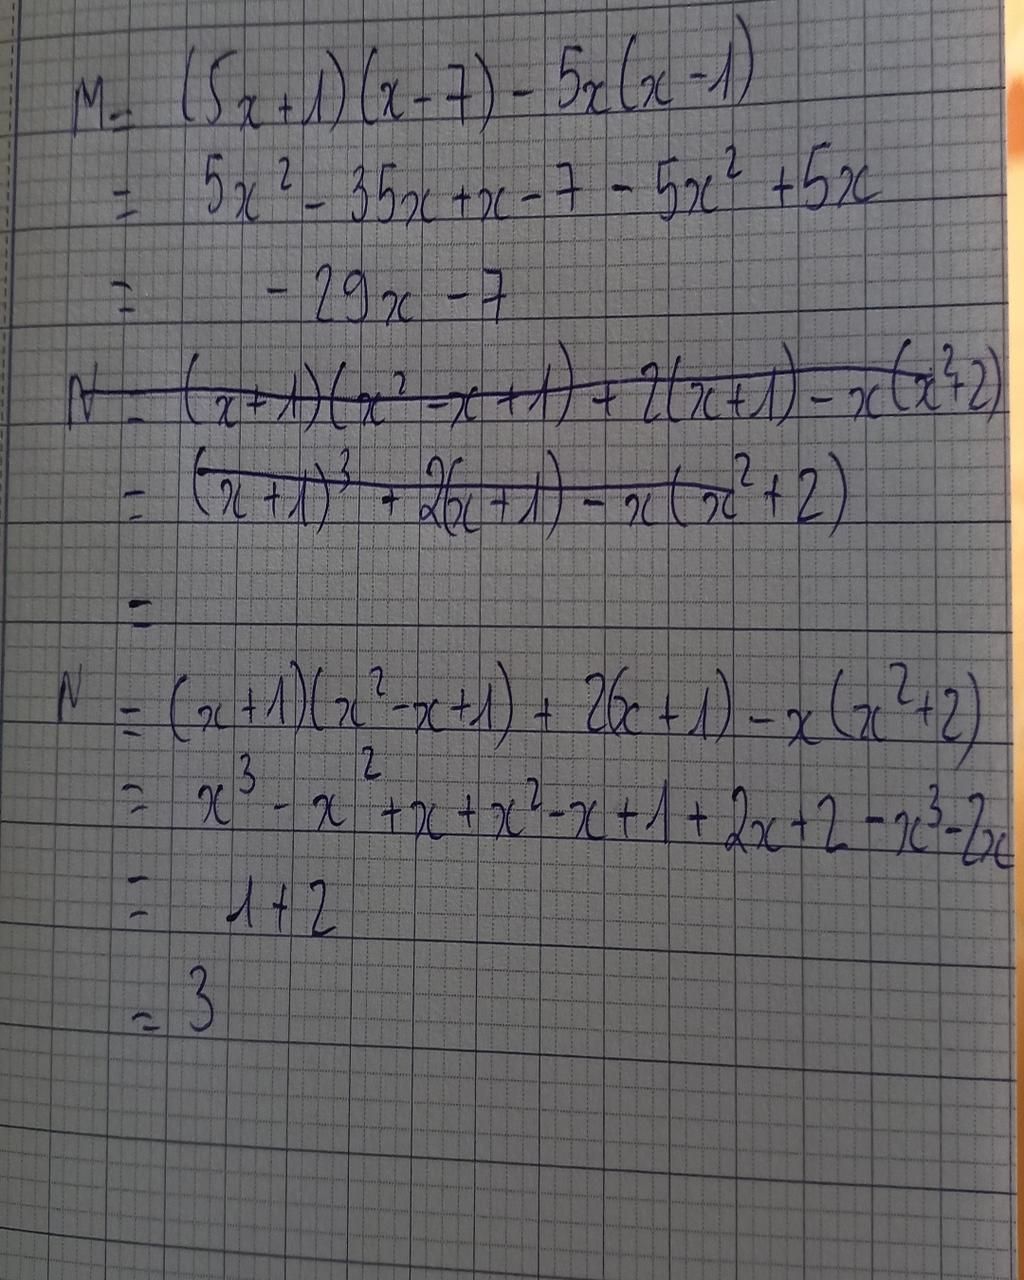 M = (5x+1)(x-7) - 5x(x-1)
= 5x² - 35x + x - 7 - 5x² + 5x
= - 29x - 7
N = (x+1)(x² - x + 1) + 2(x+1) - x(x²+2)
= (x+1)³ + 2(x+1) - x(x²+2)
=
N = (x+1)(x²-x+1) + 2(x+1) - x(x²+2)
= x³ - x² + x + x² - x + 1 + 2x + 2 - x³ - 2x
= 1+2
= 3